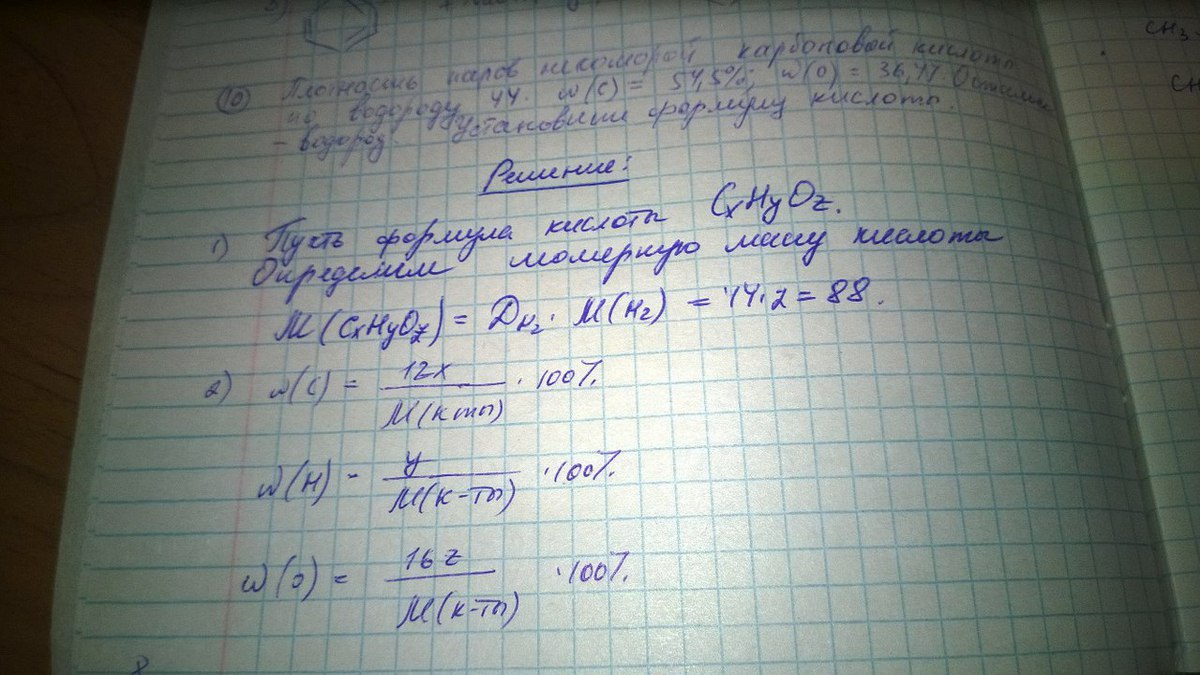 10 Плотность паров некоторой карбоновой кислоты
по водороду 44. w(C) = 54,5%; w(O) = 36,4%
- водород. Установить формулу кислоты.
Решение:
1) Пусть формула кислоты CxHyOz.
Определим молярную массу кислоты
M(CxHyOz) = D_H2 · M(H2) = 44·2 = 88.
2) w(C) = 12x / M(к-ты) · 100%.
w(H) - y / M(к-ты) · 100%.
w(O) = 16z / M(к-ты) · 100%.
CH3-
CH